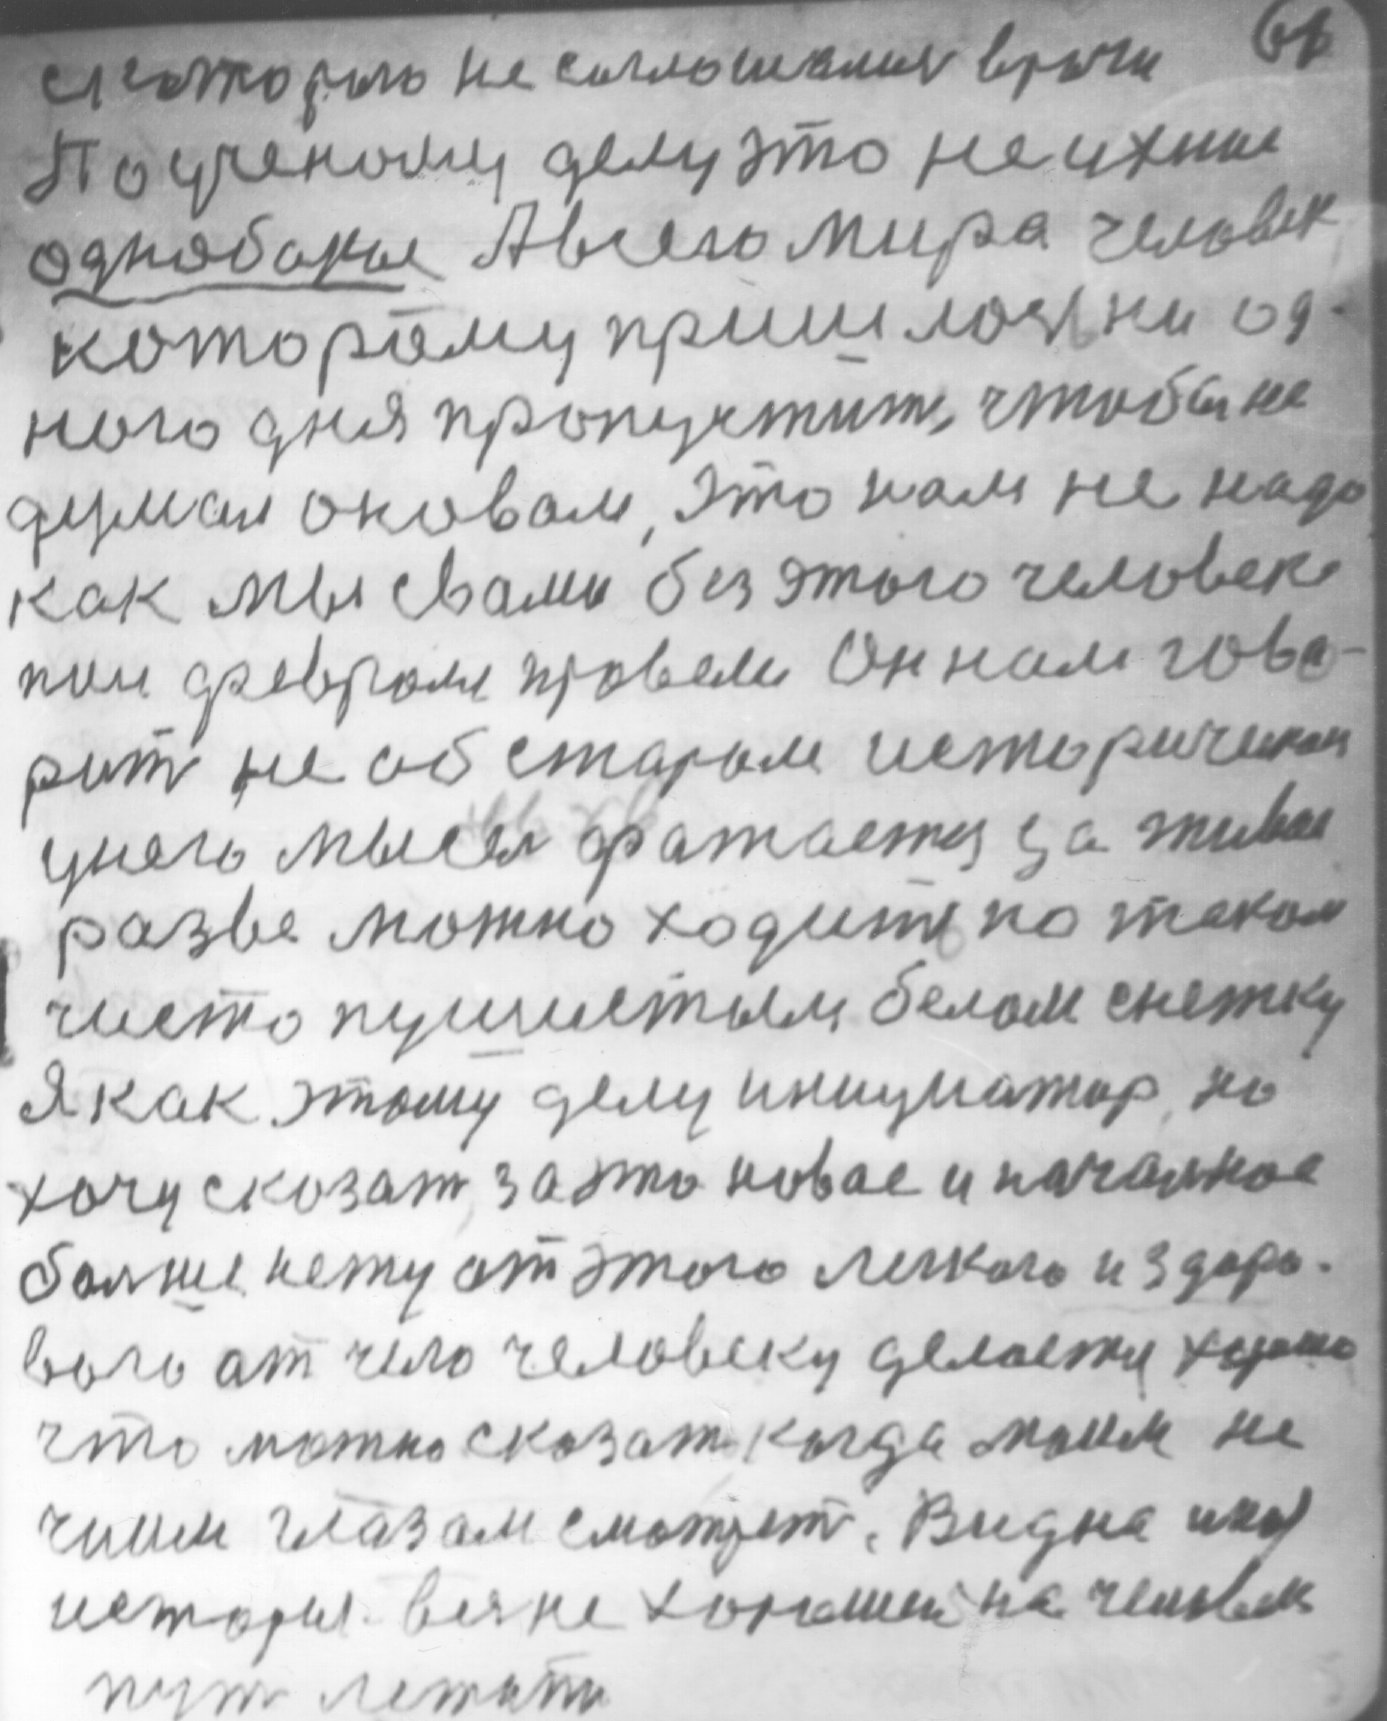 66
с которого не соглошались врачи
По ученому делу это не ихние
однобокае А всего мира человек
которому пришлося ни од-
ного дня пропустит, чтобы не
думал о ковом, это нам не надо
как мы с вами без этого человека
феврал провели Он нам гово-
рит не об старом историческом
у него мысел фатается за живое
разве можно ходить по таком
чисто пушистым белом снежку
Я как этому делу инициатор, но
хочу сказат за это новае и началное
болше нету от этого легкого и здоро-
вого от чего человеку делается хорошо
что можно сказат когда моим не
чиим глазам смотрет. Видна
история вся не хорошей на человека
пут лежати